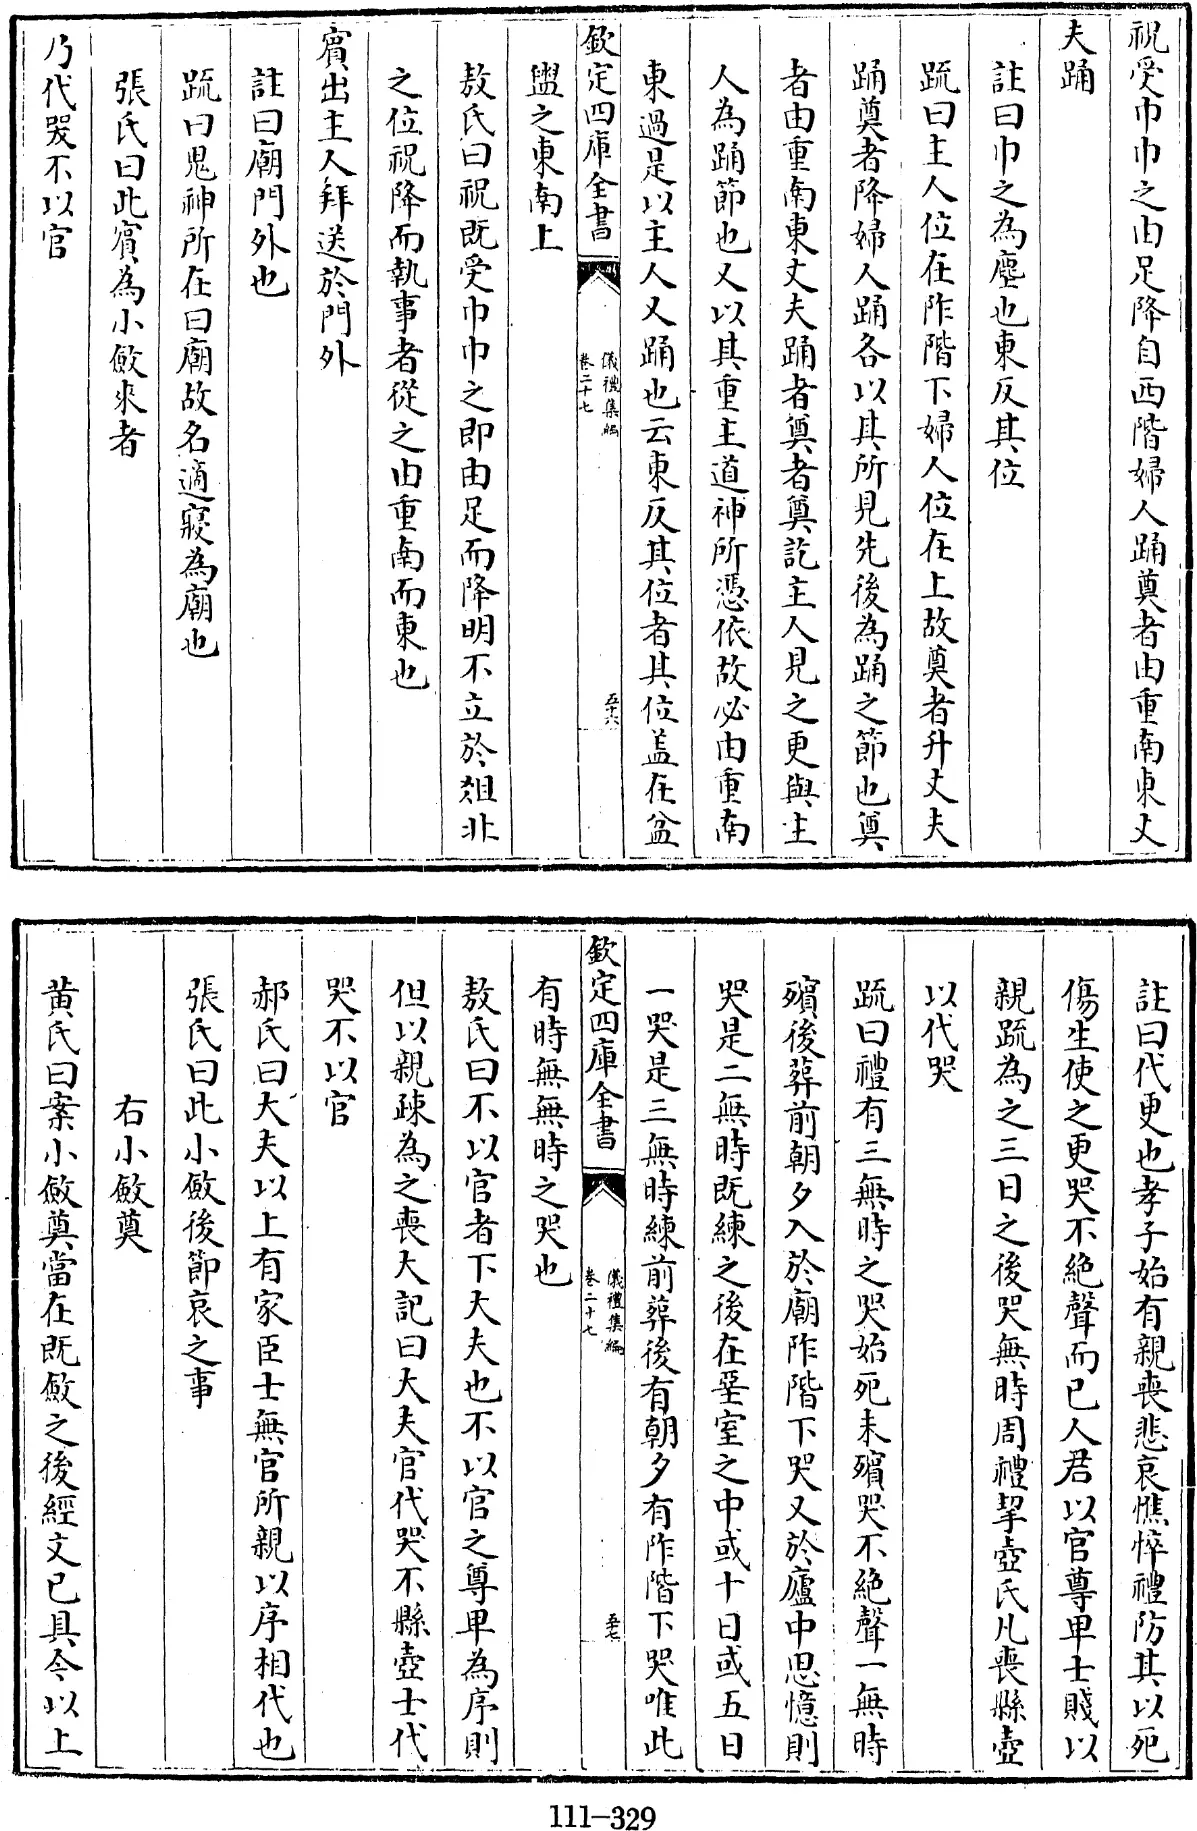 祝受巾巾之由足降自西階婦人踊奠者由重南東丈
夫踊
註曰巾之為塵也東反其位
疏曰主人位在阼階下婦人位在上故奠者升丈夫
踊奠者降婦人踊各以其所見先後為踊之節也奠
者由重南東丈夫踊者奠者奠訖主人見之更與主
人為踊節也又以其重主道神所憑依故必由重南
東過是以主人又踊也云東反其位者其位盖在盆
欽定四庫全書
儀禮集編
卷二十七
五十六
盥之東南上
敖氏曰祝既受巾巾之即由足而降明不立於俎北
之位祝降而執事者從之由重南而東也
賓出主人拜送於門外
註曰廟門外也
疏曰鬼神所在曰廟故名適寢為廟也
張氏曰此賓為小斂來者
乃代哭不以官
註曰代更也孝子始有親喪悲哀憔悴禮防其以死
傷生使之更哭不絕聲而已人君以官尊卑士賤以
親疏為之三日之後哭無時周禮挈壺氏凡喪縣壺
以代哭
疏曰禮有三無時之哭始死未殯哭不絕聲一無時
殯後葬前朝夕入於廟阼階下哭又於廬中思憶則
哭是二無時既練之後在堊室之中或十日或五日
一哭是三無時練前葬後有朝夕有阼階下哭唯此
欽定四庫全書
儀禮集編
卷二十七
五十七
有時無無時之哭也
敖氏曰不以官者下大夫也不以官之尊卑為序則
但以親疎為之喪大記曰大夫官代哭不縣壺士代
哭不以官
郝氏曰大夫以上有家臣士無官所親以序相代也
張氏曰此小斂後節哀之事
右小斂奠
黃氏曰案小斂奠當在既斂之後經文已具今以上
111-329